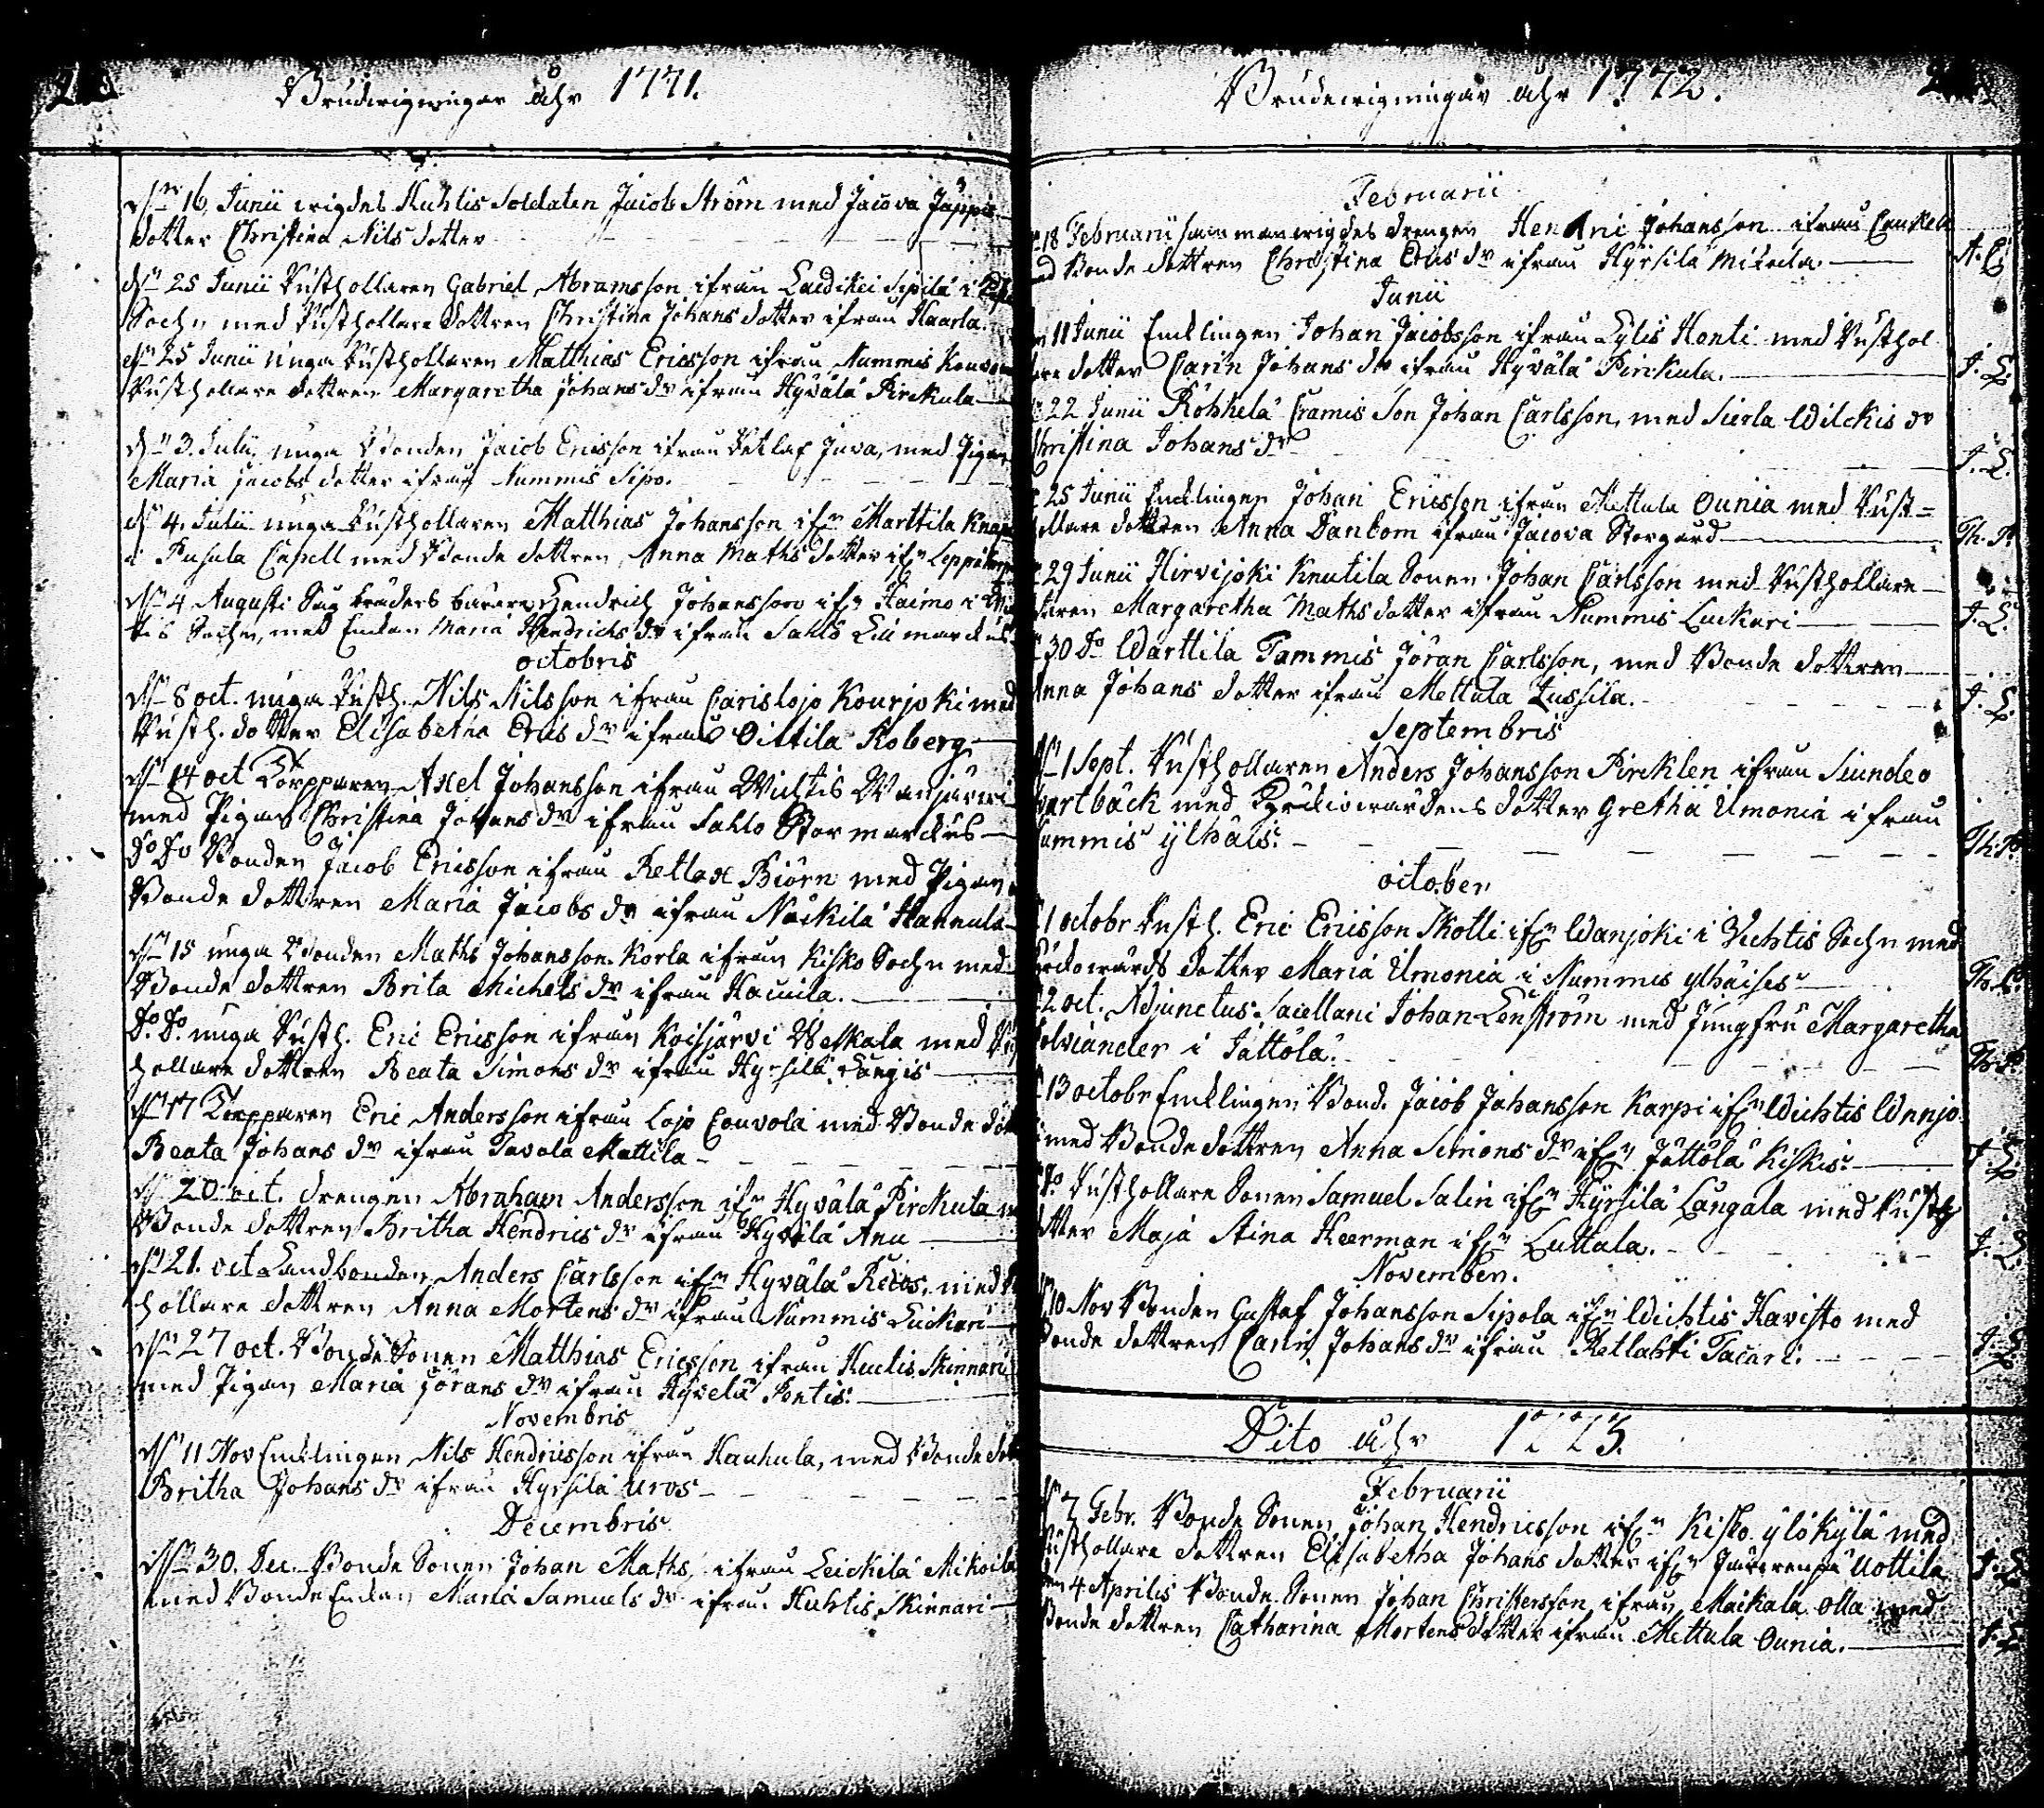 Brudwigningar åhr 1771.
dn 16 Junii wigdes Huhtis Soldaten Jacob Ström med Jacova Jåppis
dotter Christina Nils dotter
dn 25 Junii Rusthollaren Gabriel Abramsson ifrån Sipilä i
Sochn med Rusthollare dottren Christina Johans dotter ifrån Haarla.
dn 25 Junii unga Rusthollaren Matthias Ericsson ifrån Nummis
Rusthollare dottren Margaretha Johans dr ifrån Hyvälä Pirckula
dn 3. Julii, unga Bonden Jacob Ericsson ifrån Juva, med Pigan
Maria Jacobs dotter ifrån Nummis Sipo.
dn 4. Julii unga Rusthollaren Matthias Johansson ifrn Marttila
i Pusula Capell med Bonde dottren Anna Maths dotter ifrn
dn 4 Augusti Hendrich Johansson ifrn Haimo i
tis Sochn, med Enkan Maria Hendrichs dr ifrån Sahlo Lillmarckus
octobris
dn 8 oct. unga Rusth. Nils Nilsson ifrån Carislojo Kourjoki med
Rusth. dotter Elisabetha Erics dr ifrån Oittila Roberg
dn 14 oct Torpparen Axel Johansson ifrån Wichtis Wanjärwi
med Pigan Christina Johans dr ifrån Sahlo Stor marckus
Do Do Bonden Jacob Ericsson ifrån Retlax Biörn med Pigan
Bonde dottren Maria Jacobs dr ifrån Näckilä Hannula
dn 15 unga Bonden Maths Johansson Korla ifrån Kisko Sochn med
Bonde dottren Brita Michels dr ifrån Hacuila.
Do Do unga Rusth. Eric Ericsson ifrån Koisjärvi Weskala med Rust
hollare dottren Beata Simons dr ifrån Hyrsilä Långis
dn 17 Torpparen Eric Andersson ifrån Lojo Couvola med Bonde dott
Beata Johans dr ifrån Tavola Mattila
dn 20 oct. drengen Abraham Andersson ifrn Hyvälä Pirckula
Bonde dottren Britha Hendrics dr ifrån Hyvälä Anu
dn 21. oct Landbonden Anders Carlsson ifrn Hyvälä med
hollare dottren Anna Mortens dr ifrån Nummis Luckari
dn 27 oct. Bonde Sonen Matthias Ericsson ifrån Huctis Skinnari
med Pigan Maria Jörans dr ifrån Hyvelä Pentis.
Novembris
dn 11 Nov Encklingen Nils Hendricsson ifrån Hauhula, med Bonde dott
Britha Johans dr ifrån Hyrsilä Uros
Decembris
dn 30. Dec. Bonde Sonen Johan Maths, ifrån Leickilä Mikoila
med Bonde Enkan Maria Samuels dr ifrån Huhtis Skinnari
Brudewigningar åhr 1772.
Februarii
18 Februarii samman wigdes drengen Hendric Johansson ifrån
med Bonde dottren Christina Erics dr ifrån Hyrsilä Mikola
Junii
11 Junii Encklingen Johan Jacobsson ifrån Kylis Honti med Rusthol
lare dotter Carin Johans dr ifrån Hyvälä Pirckula. J. L.
22 Junii Röhkelä Cramis Son Johan Carlsson, med Sierla Wilckis dr
Christina Johans dr J. L.
25 Junii Encklingen Johan Ericsson ifrån Mettula Ounia med Rust=
hollare dottren Anna Danbom ifrån Jacova Storgård Th. P.
29 Junii Hirvijoki Knutila Sonen Johan Carlsson med Rusthollare
dottren Margaretha Maths dotter ifrån Nummis Luckari J. L.
30 Do Warttila Tammis Jöran Carlsson, med Bonde dottren
Anna Johans dotter ifrån Mettula Jussila. J. L.
Septembris
dn 1 Sept. Rusthollaren Anders Johansson Pircklen ifrån Siundeo
Swartbäck med Kyrckiowärdens dotter Gretha Ilmonia ifrån
Nummis ylhäis. Th. P.
october
1 octobr Rusth. Eric Ericsson Skotti ifrn Wanjoki i Vichtis Sochn med
Kyrckowärds dotter Maria Ilmonia i Nummis ylhäises
2 oct. Adjunctus Sacellani Johan Lenström med Jungfru Margaretha
Polviander i Jättölä.
13 octobr Encklingen Bond. Jacob Johansson Karpi ifrn Wichtis Wanjo
med Bonde dottren Anna Simons dr ifrn Jättölä Kiskis J. L.
Do Rusthollare Sonen Samuel Salin ifrn Hyrsilä Långala med Rusth
dotter Maja Stina Heerman ifrn Luttala. J. L.
November.
10 Nov Bonden Gustaf Johansson Sipola ifrn Wichtis Havisto med
Bonde dottren Carin Johans dr ifrån Retlahti Tacari. J. L.
Dito åhr 1773.
Februarii
7 Febr. Bonde Sonen Johan Hendricsson ifrn Kisko ylökylä med
Rusthollare dottren Elisabetha Johans dotter ifrn Uottila J. L.
den 4 Aprilis Bonde Sonen Johan Christersson ifrån Maikala Olla med
Bonde dottren Catharina Mortens dotter ifrån Mettula Ounia. J. L.